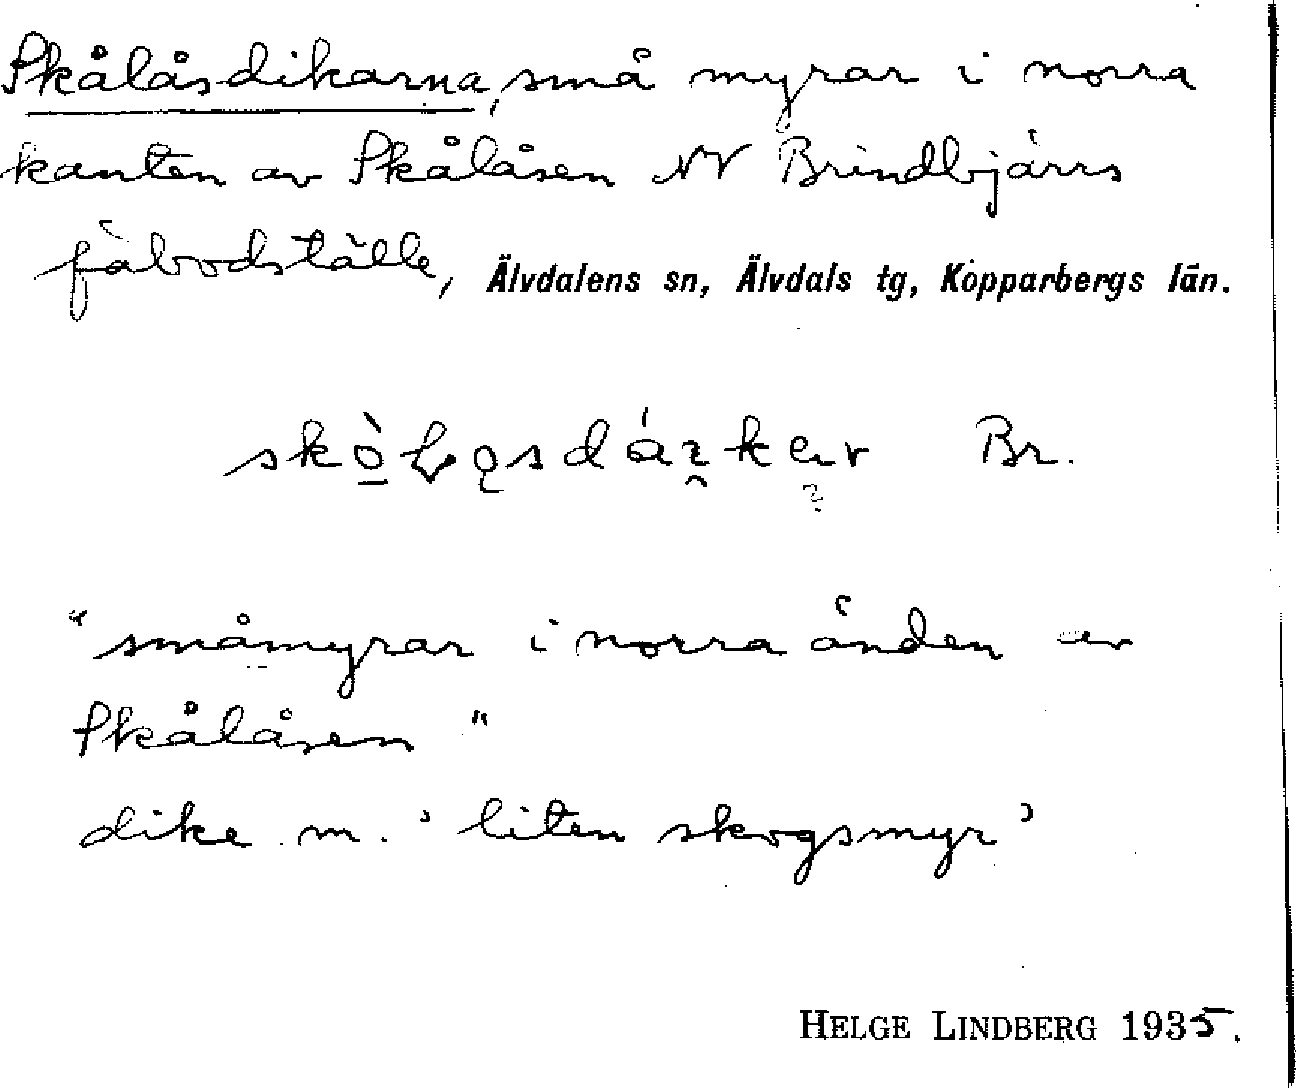 Skålåsdikarna, små myrar i norra
kanten av Skålåsen NV Brindbjärs
fäbodställe, Älvdalens sn, Älvdals tg, Kopparbergs län.
Br.
"småmyrar i norra änden av
Skålåsen"
dike m. 'liten skogsmyr'
HELGE LINDBERG 1935.